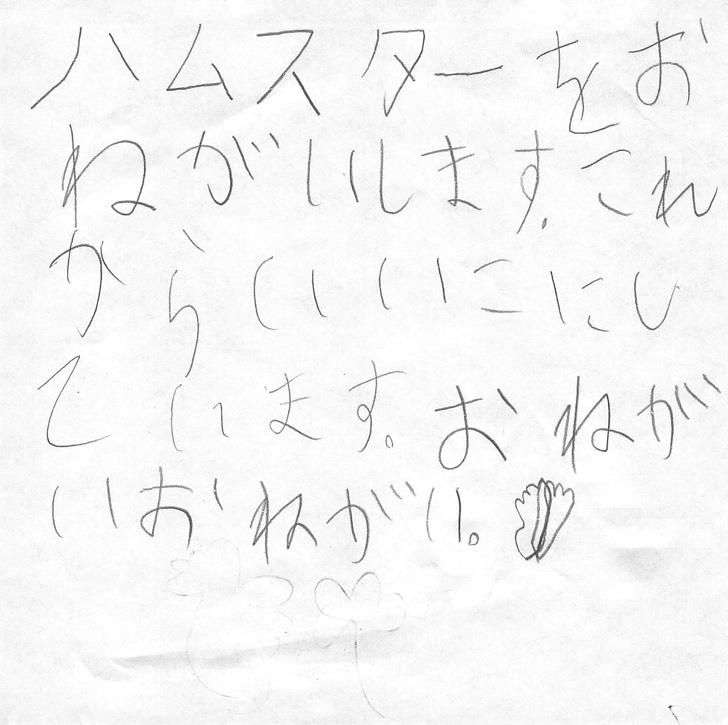 ハムスターをお
ねがいします。これ
からいいいこにし
ています。おねが
いおねがい。